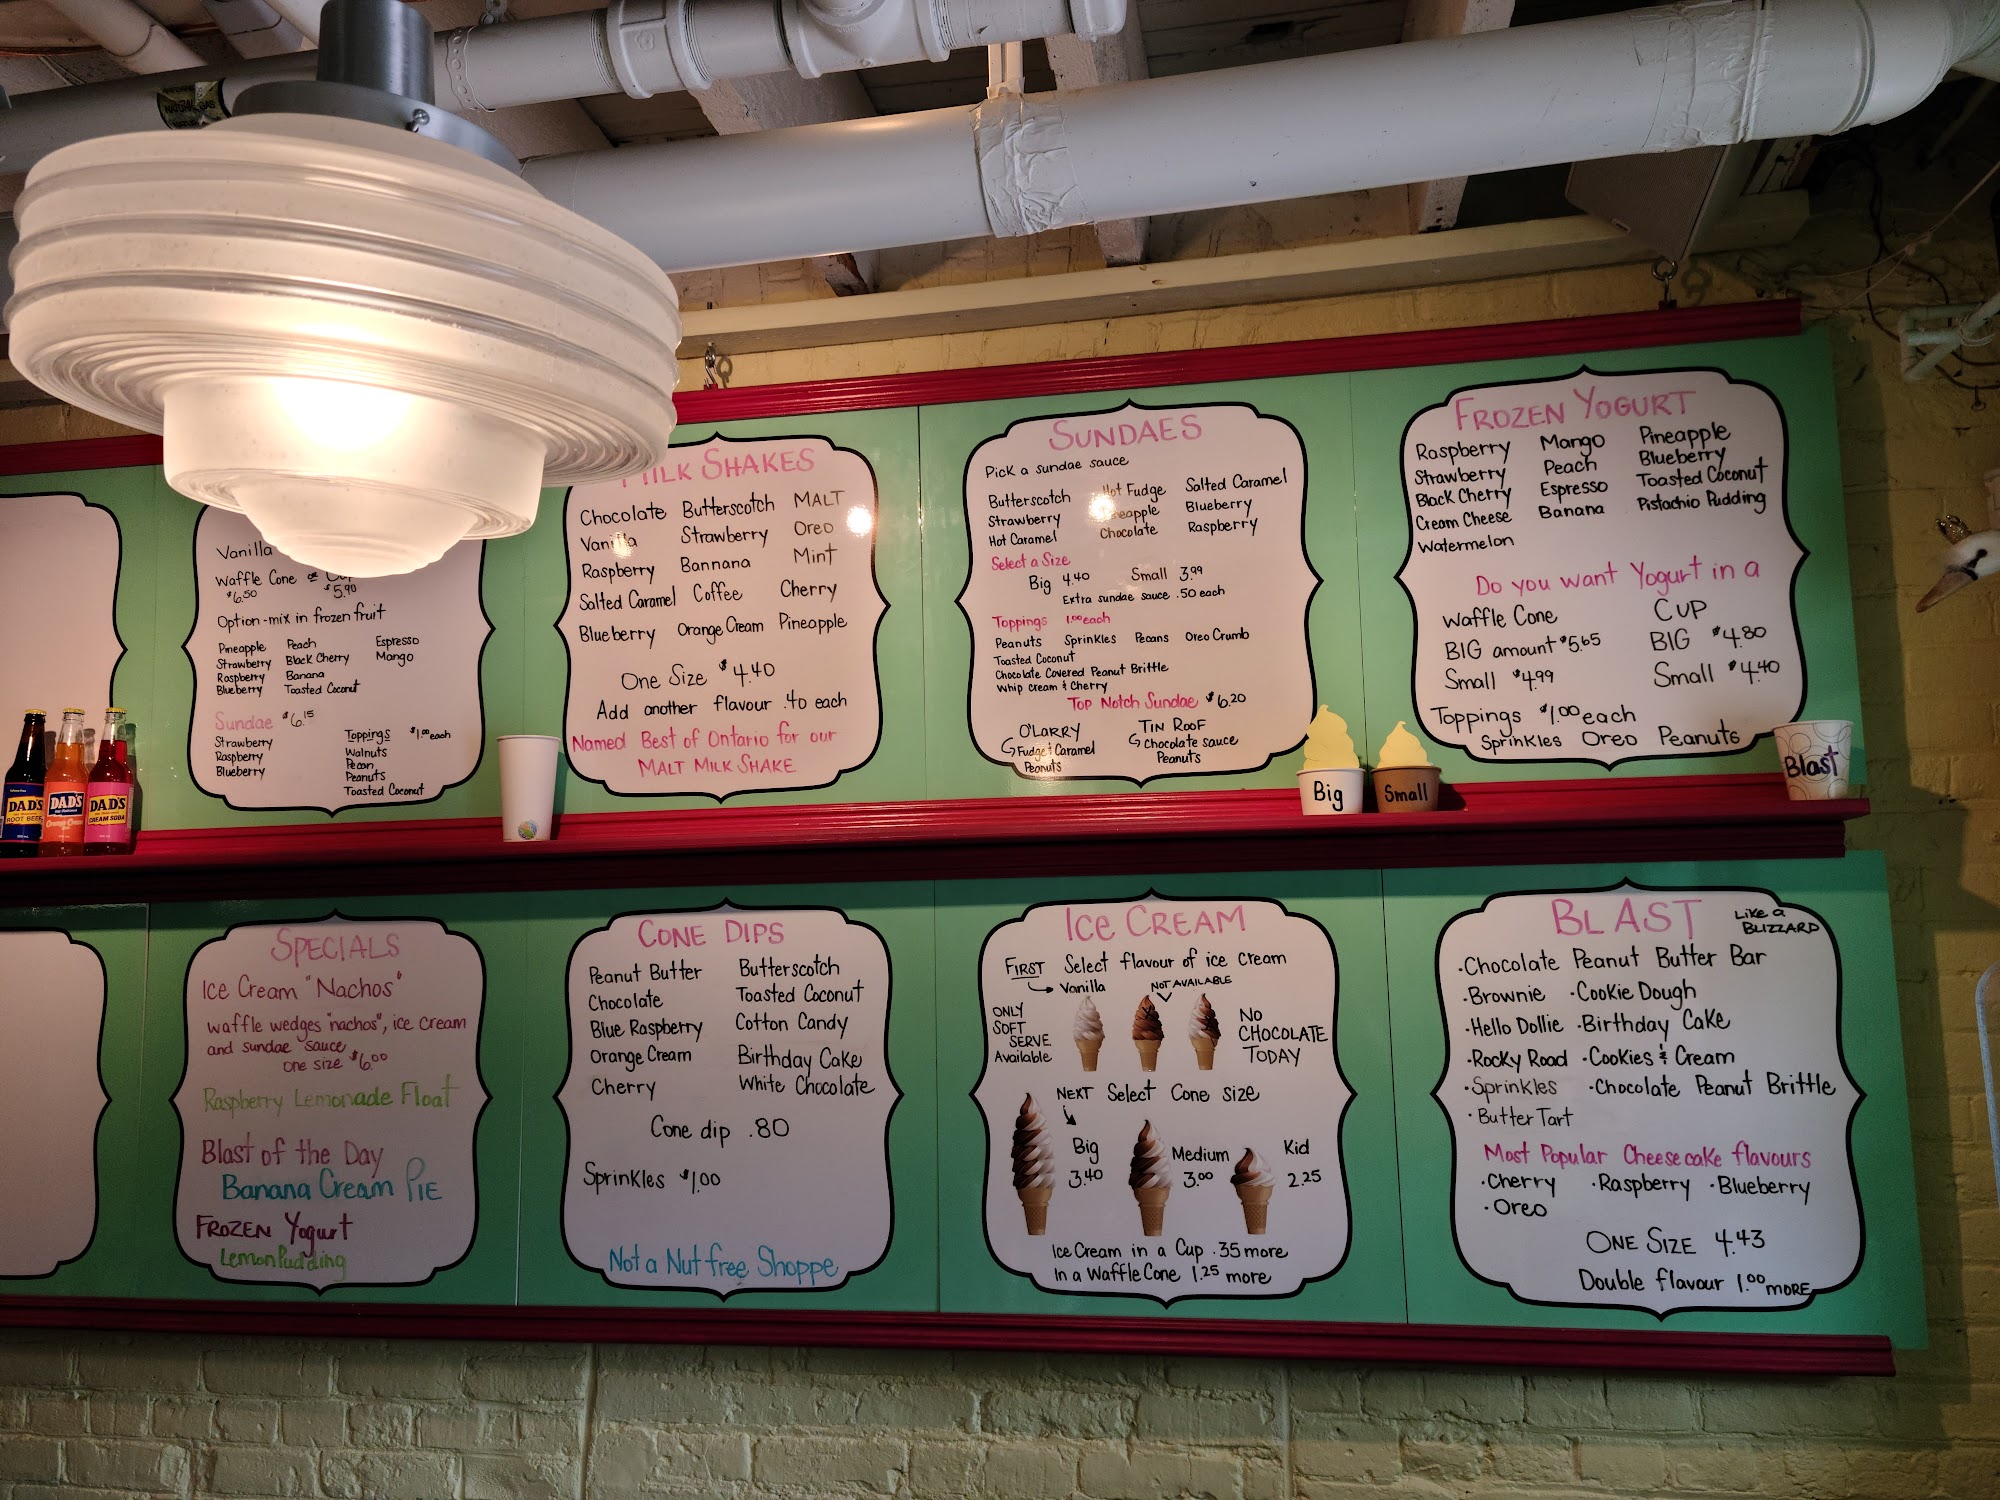 NATURAL GAS
Vanilla
Waffle Cone or Cup
$6.50 $5.90
Option - mix in frozen fruit
Pineapple Peach Espresso
Strawberry Black Cherry Mango
Raspberry Banana
Blueberry Toasted Coconut
Sundae $6.15
Strawberry
Raspberry
Blueberry
Toppings $1.00 each
Walnuts
Pecan
Peanuts
Toasted Coconut
MILK SHAKES
Chocolate Butterscotch MALT
Vanilla Strawberry Oreo
Raspberry Bannana Mint
Salted Caramel Coffee Cherry
Blueberry Orange Cream Pineapple
One Size $4.40
Add another flavour .40 each
Named Best of Ontario for our
MALT MILK SHAKE
SUNDAES
Pick a sundae sauce
Butterscotch Hot Fudge Salted Caramel
Strawberry Pineapple Blueberry
Hot Caramel Chocolate Raspberry
Select a Size
Big 4.40 Small 3.99
Extra sundae sauce .50 each
Toppings 1.00 each
Peanuts Sprinkles Pecans Oreo Crumb
Toasted Coconut
Chocolate Covered Peanut Brittle
Whip cream & Cherry
Top Notch Sundae $6.20
O'LARRY TIN ROOF
Fudge & Caramel Chocolate sauce
Peanuts Peanuts
FROZEN YOGURT
Raspberry Mango Pineapple
Strawberry Peach Blueberry
Black Cherry Espresso Toasted Coconut
Cream Cheese Banana Pistachio Pudding
Watermelon
Do you want Yogurt in a
Waffle Cone CUP
BIG amount $5.65 BIG $4.80
Small $4.99 Small $4.40
Toppings $1.00 each
Sprinkles Oreo Peanuts
DAD'S
ROOT BEER
DAD'S
Orange Cream
DAD'S
CREAM SODA
Big
Small
Blast
SPECIALS
Ice Cream "Nachos"
waffle wedges "nachos", ice cream
and sundae sauce
one size $6.00
Raspberry Lemonade Float
Blast of the Day
Banana Cream PIE
FROZEN Yogurt
Lemon Pudding
CONE DIPS
Peanut Butter Butterscotch
Chocolate Toasted Coconut
Blue Raspberry Cotton Candy
Orange Cream Birthday Cake
Cherry White Chocolate
Cone dip .80
Sprinkles $1.00
Not a Nut free Shoppe
ICE CREAM
FIRST Select flavour of ice cream
Vanilla NOT AVAILABLE
ONLY
SOFT
SERVE
Available
NO
CHOCOLATE
TODAY
NEXT Select Cone size
Big
3.40
Medium
3.00
Kid
2.25
Ice Cream in a Cup .35 more
In a Waffle Cone 1.25 more
BLAST Like a
BLIZZARD
·Chocolate Peanut Butter Bar
·Brownie ·Cookie Dough
·Hello Dollie ·Birthday Cake
·Rocky Road ·Cookies & Cream
·Sprinkles ·Chocolate Peanut Brittle
·Butter Tart
Most Popular Cheesecake flavours
·Cherry ·Raspberry ·Blueberry
·Oreo
ONE SIZE 4.43
Double flavour 1.00 more